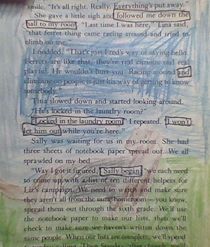 smile. "It's all right. Really. Everything's put away."
She gave a little sigh and followed me down the
hall to my room. "Last time I was here," Tina said,
"that ferret thing came racing around and tried to
climb on me."
I nodded. "That's just Fred's way of saying hello
Ferrets are like that, they're real curious and
playful. He wouldn't hurt you. Racing around and
climbing on people is just his way of
Tina slowed down and started looking around.
"He's locked in the laundry room?"
"Locked in the laundry room," I repeated. "I won't
let him out while you're here."
Sally was waiting for us in my room. She had
three sheets of notebook paper spread out. We all
sprawled on my bed.
"Way I got it figured," Sally began, "we each need
to come up with a list of ten different helpers for
campaign. We need to write and make sure
they aren't all from the same homeroom—you know,
spread them out through the sixth grade. We'll use
the notebook paper to make our lists, then we'll
check to make sure we haven't written down the
same people. When our lists are complete, we'll